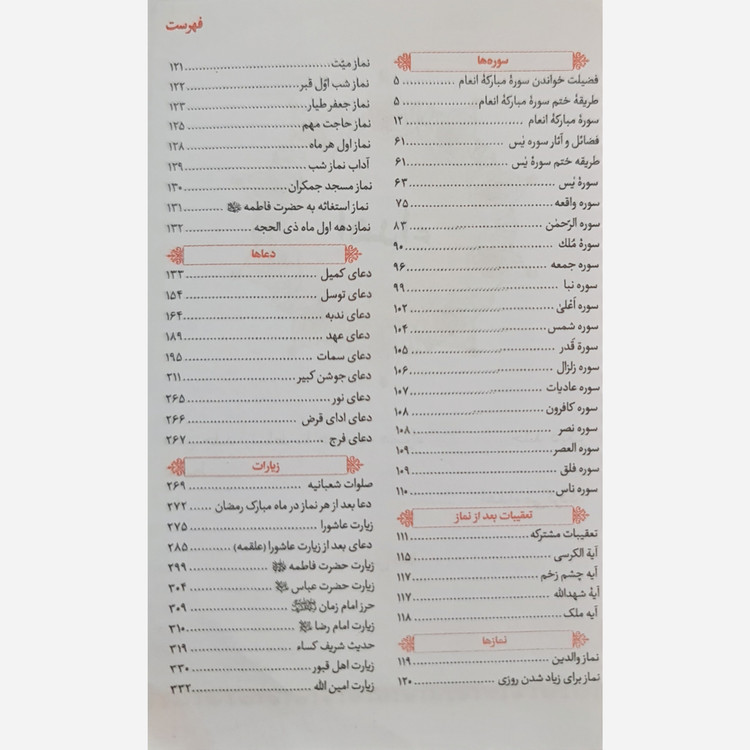 فهرست
سوره‌ها
فضیلت خواندن سورهٔ مبارکهٔ انعام ............ ۵
طریقهٔ ختم سورهٔ مبارکهٔ انعام ............ ۵
سورهٔ مبارکهٔ انعام ............ ۱۲
فضائل و آثار سوره یٰس ............ ۶۱
طریقه ختم سورهٔ یٰس ............ ۶۱
سورهٔ یٰس ............ ۶۳
سوره واقعه ............ ۷۵
سوره الرّحمٰن ............ ۸۳
سورهٔ مُلك ............ ۹۰
سوره جمعه ............ ۹۶
سوره نبا ............ ۹۹
سوره أعْلیٰ ............ ۱۰۲
سوره شمس ............ ۱۰۴
سورة قَدر ............ ۱۰۵
سوره زلزال ............ ۱۰۶
سوره عادیات ............ ۱۰۷
سوره کافرون ............ ۱۰۸
سوره نصر ............ ۱۰۸
سوره العصر ............ ۱۰۹
سوره فلق ............ ۱۰۹
سوره ناس ............ ۱۱۰
تعقیبات بعد از نماز
تعقیبات مشترکه ............ ۱۱۱
آیة الکرسی ............ ۱۱۵
آیه چشم زخم ............ ۱۱۷
آیهٔ شهدالله ............ ۱۱۷
آیه ملک ............ ۱۱۸
نمازها
نماز والدین ............ ۱۱۹
نماز برای زیاد شدن روزی ............ ۱۲۰
نماز میّت ............ ۱۲۱
نماز شب اوّل قبر ............ ۱۲۲
نماز جعفر طیار ............ ۱۲۳
نماز حاجت مهم ............ ۱۲۵
نماز اول هر ماه ............ ۱۲۸
آداب نماز شب ............ ۱۲۹
نماز مسجد جمکران ............ ۱۳۰
نماز استغاثه به حضرت فاطمه ............ ۱۳۱
نماز دهه اول ماه ذی الحجه ............ ۱۳۲
دعاها
دعای کمیل ............ ۱۳۳
دعای توسل ............ ۱۵۴
دعای ندبه ............ ۱۶۴
دعای عهد ............ ۱۸۹
دعای سمات ............ ۱۹۵
دعای جوشن کبیر ............ ۲۱۱
دعای نور ............ ۲۶۵
دعای ادای قرض ............ ۲۶۶
دعای فرج ............ ۲۶۷
زیارات
صلوات شعبانیه ............ ۲۶۹
دعا بعد از هر نماز در ماه مبارک رمضان ...... ۲۷۲
زیارت عاشورا ............ ۲۷۵
دعای بعد از زیارت عاشورا (علقمه) ............ ۲۸۵
زیارت حضرت فاطمه ............ ۲۹۹
زیارت حضرت عباس ............ ۳۰۴
حرز امام زمان ............ ۳۰۹
زیارت امام رضا ............ ۳۱۰
حدیث شریف کساء ............ ۳۱۹
زیارت اهل قبور ............ ۳۳۰
زیارت امین الله ............ ۳۳۲